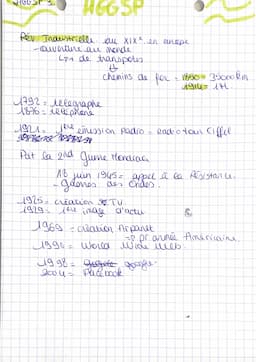 HGGSP 3.
HGGSP
Rév Industrielle du XIXe en
- ouverture au monde
↳ + de transports
chemins de fer = 1850 = 35000 km
1914 = 1M
1792 = télégraphe
1876 = téléphone
1921 = 1ère émission Radio = radio tour Eiffel
Pdt la 2nd Guerre Mondiale
18 juin 1945 = appel à la Résistance
- Guerres des Ondes.
1925 = création TV
1929 = 1ère image d'actu
1969 = création Arpanet
pr année Américaine
1990 = World Wide Web
1998 = google
2004 = Facebook